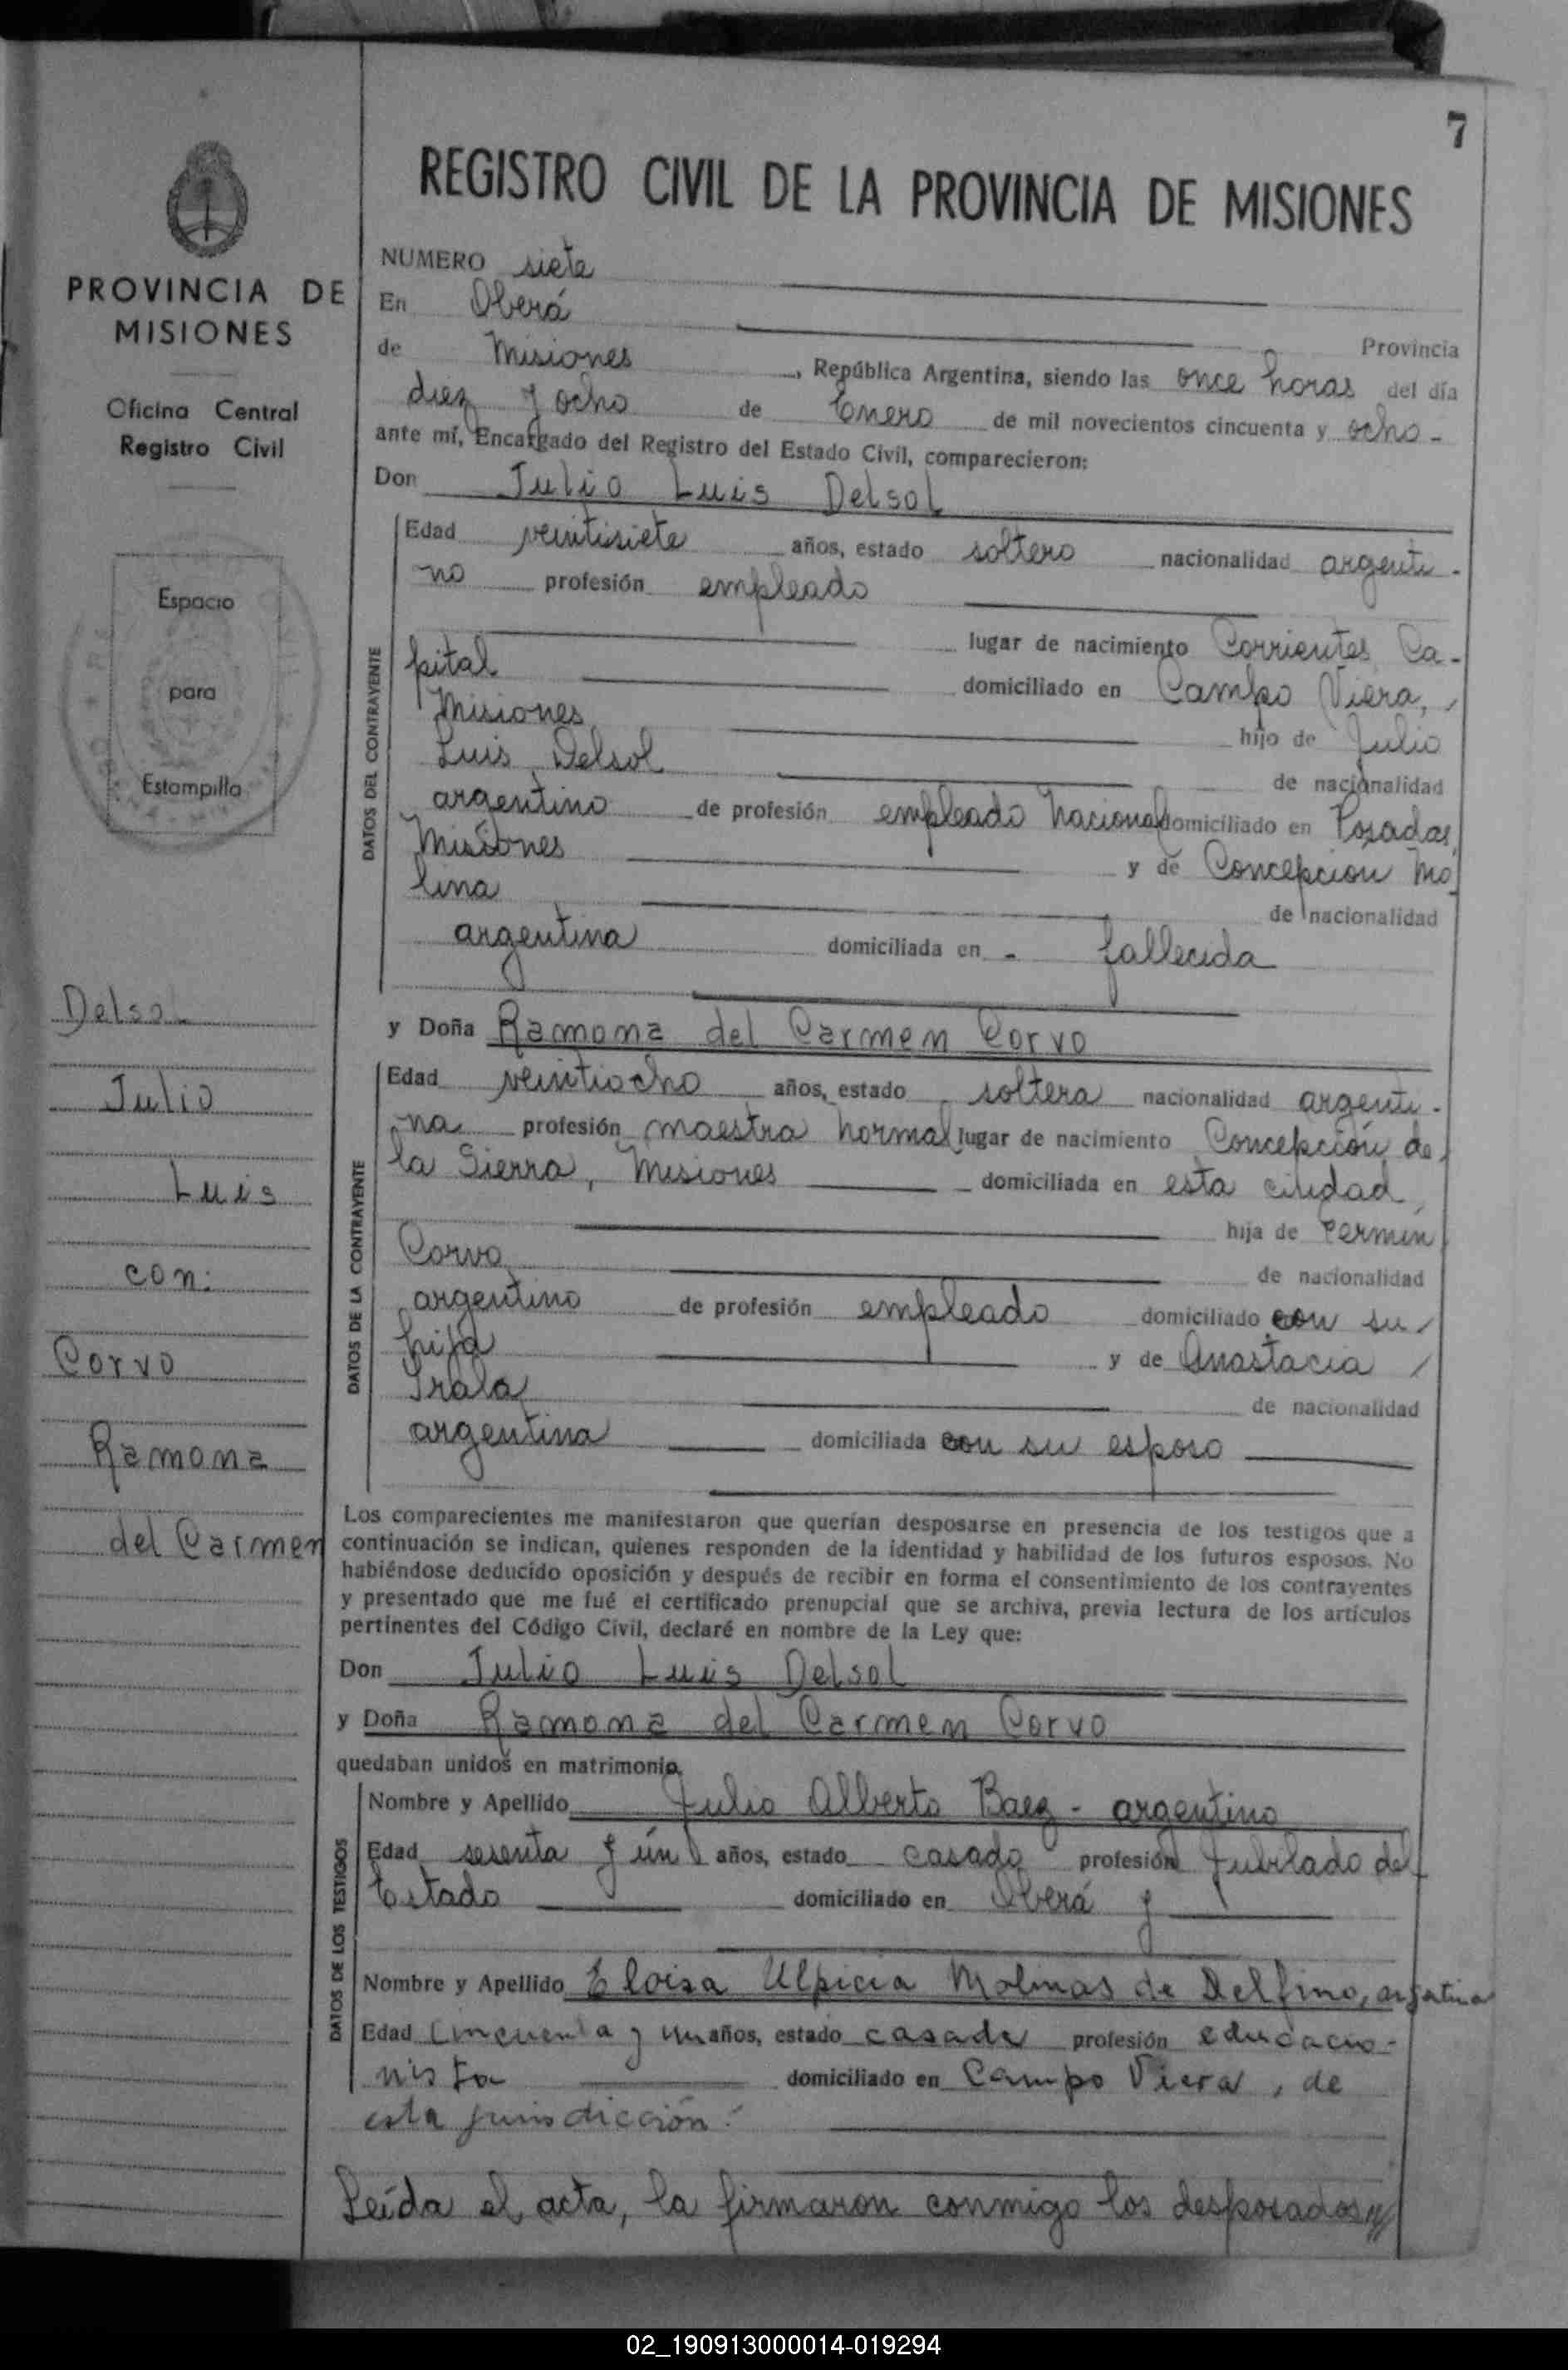 7
REGISTRO CIVIL DE LA PROVINCIA DE MISIONES
PROVINCIA DE
MISIONES
Oficina Central
Registro Civil
Espacio
para
Estampilla
Delsol
Julio
Luis
con:
Corvo
Ramona
del Carmen
NUMERO siete
En Oberá
Provincia
de Misiones, República Argentina, siendo las once horas del día
diez y ocho de Enero de mil novecientos cincuenta y ocho -
ante mí, Encargado del Registro del Estado Civil, comparecieron:
Don Julio Luis Delsol
DATOS DEL CONTRAYENTE
Edad veintisiete años, estado soltero nacionalidad argenti-
no profesión empleado
lugar de nacimiento Corrientes Ca-
pital domiciliado en Campo Viera,
Misiones hijo de Julio
Luis Delsol de nacionalidad
argentino de profesión empleado Nacional domiciliado en Posadas,
Misiones y de Concepción Mo
lina de nacionalidad
argentina domiciliada en - fallecida
y Doña Ramona del Carmen Corvo
DATOS DE LA CONTRAYENTE
Edad veintiocho años, estado soltera nacionalidad argenti-
na profesión maestra normal lugar de nacimiento Concepción de
la Sierra, Misiones domiciliada en esta ciudad,
hija de Fermin
Corvo de nacionalidad
argentino de profesión empleado domiciliado con su
hija y de Anastacia
Irala de nacionalidad
argentina domiciliada con su esposo
Los comparecientes me manifestaron que querían desposarse en presencia de los testigos que a
continuación se indican, quienes responden de la identidad y habilidad de los futuros esposos. No
habiéndose deducido oposición y después de recibir en forma el consentimiento de los contrayentes
y presentado que me fué el certificado prenupcial que se archiva, previa lectura de los artículos
pertinentes del Código Civil, declaré en nombre de la Ley que:
Don Julio Luis Delsol
y Doña Ramona del Carmen Corvo
quedaban unidos en matrimonio.
DATOS DE LOS TESTIGOS
Nombre y Apellido Julio Alberto Baez - argentino
Edad sesenta y ún años, estado casado profesión Jubilado del
Estado domiciliado en Oberá y
Nombre y Apellido Eloisa Ulpicia Molinas de Delfino, argentina
Edad cincuenta y un años, estado casada profesión educacio-
nista domiciliado en Campo Viera, de
esta jurisdicción.
Leída el acta, la firmaron conmigo los desposados y
02_190913000014-019294